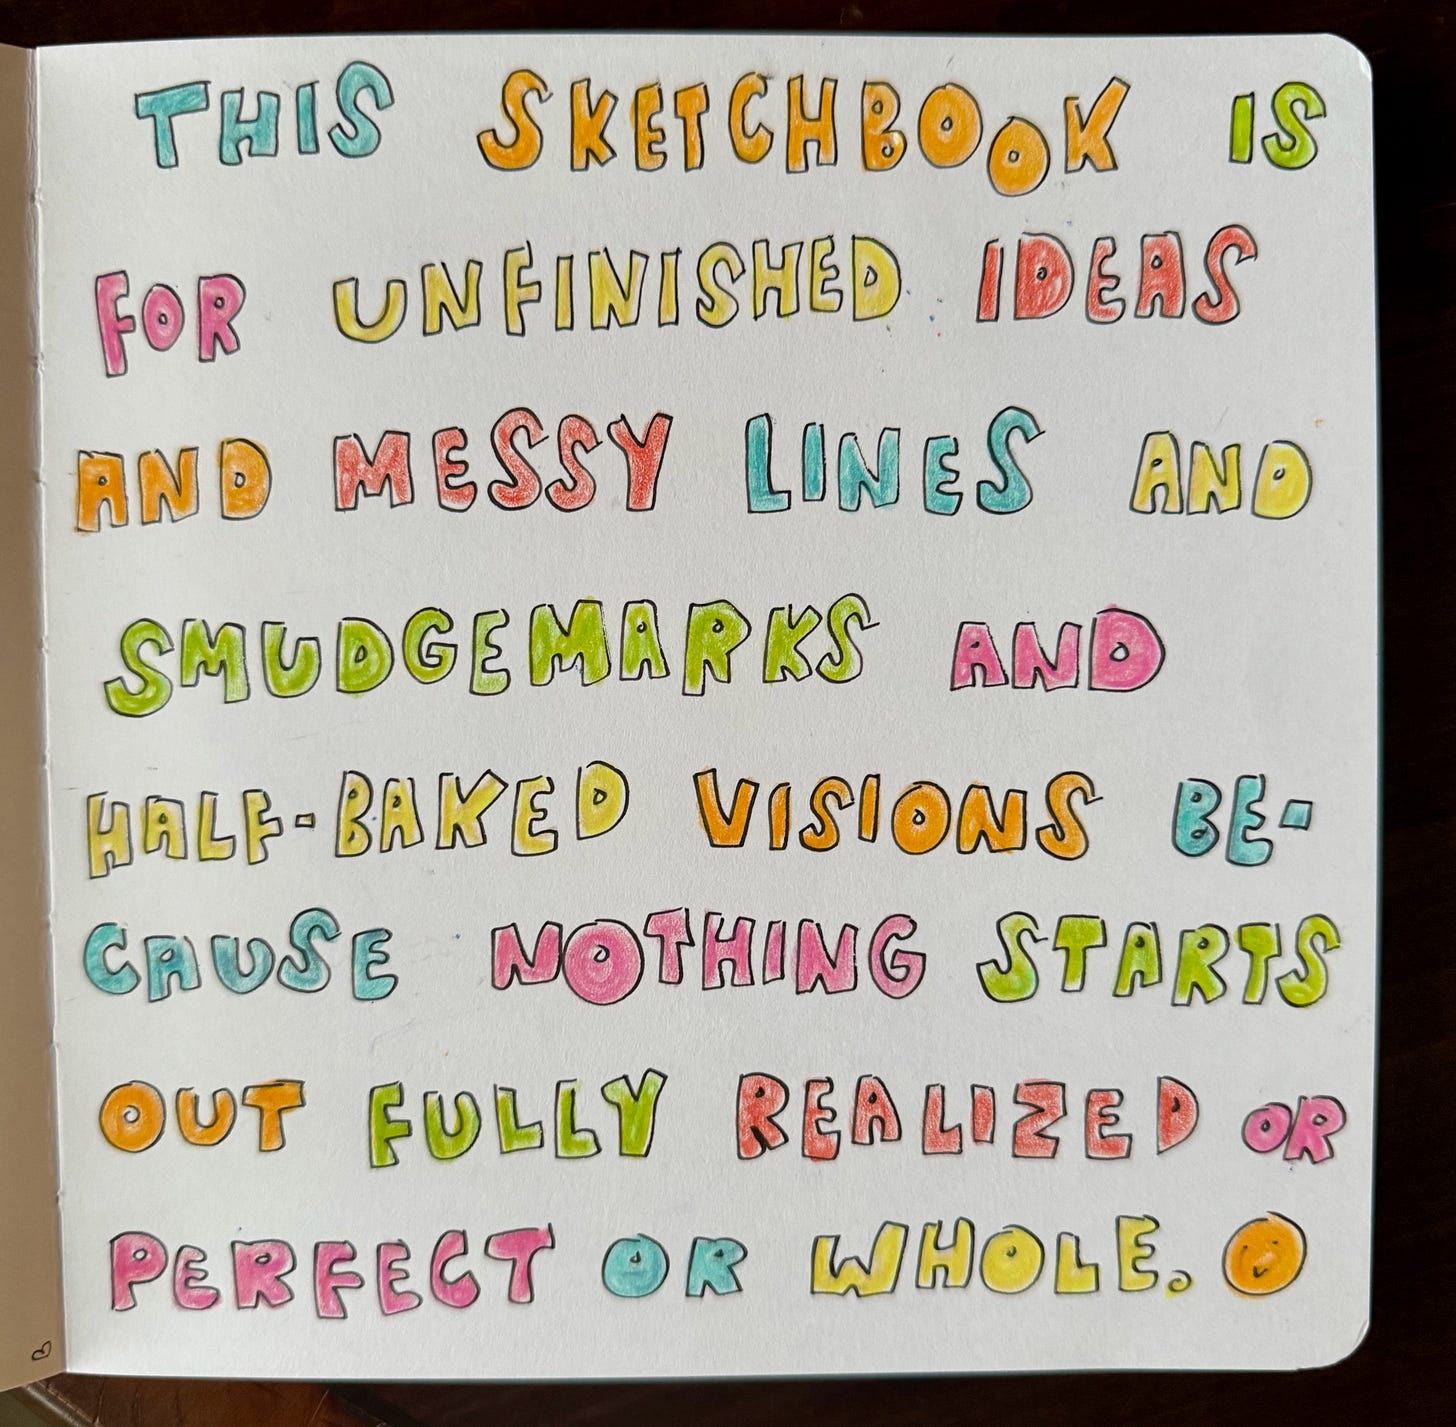 THIS SKETCHBOOK IS
FOR UNFINISHED IDEAS
AND MESSY LINES AND
SMUDGEMARKS AND
HALF-BAKED VISIONS BE-
CAUSE NOTHING STARTS
OUT FULLY REALIZED OR
PERFECT OR WHOLE.